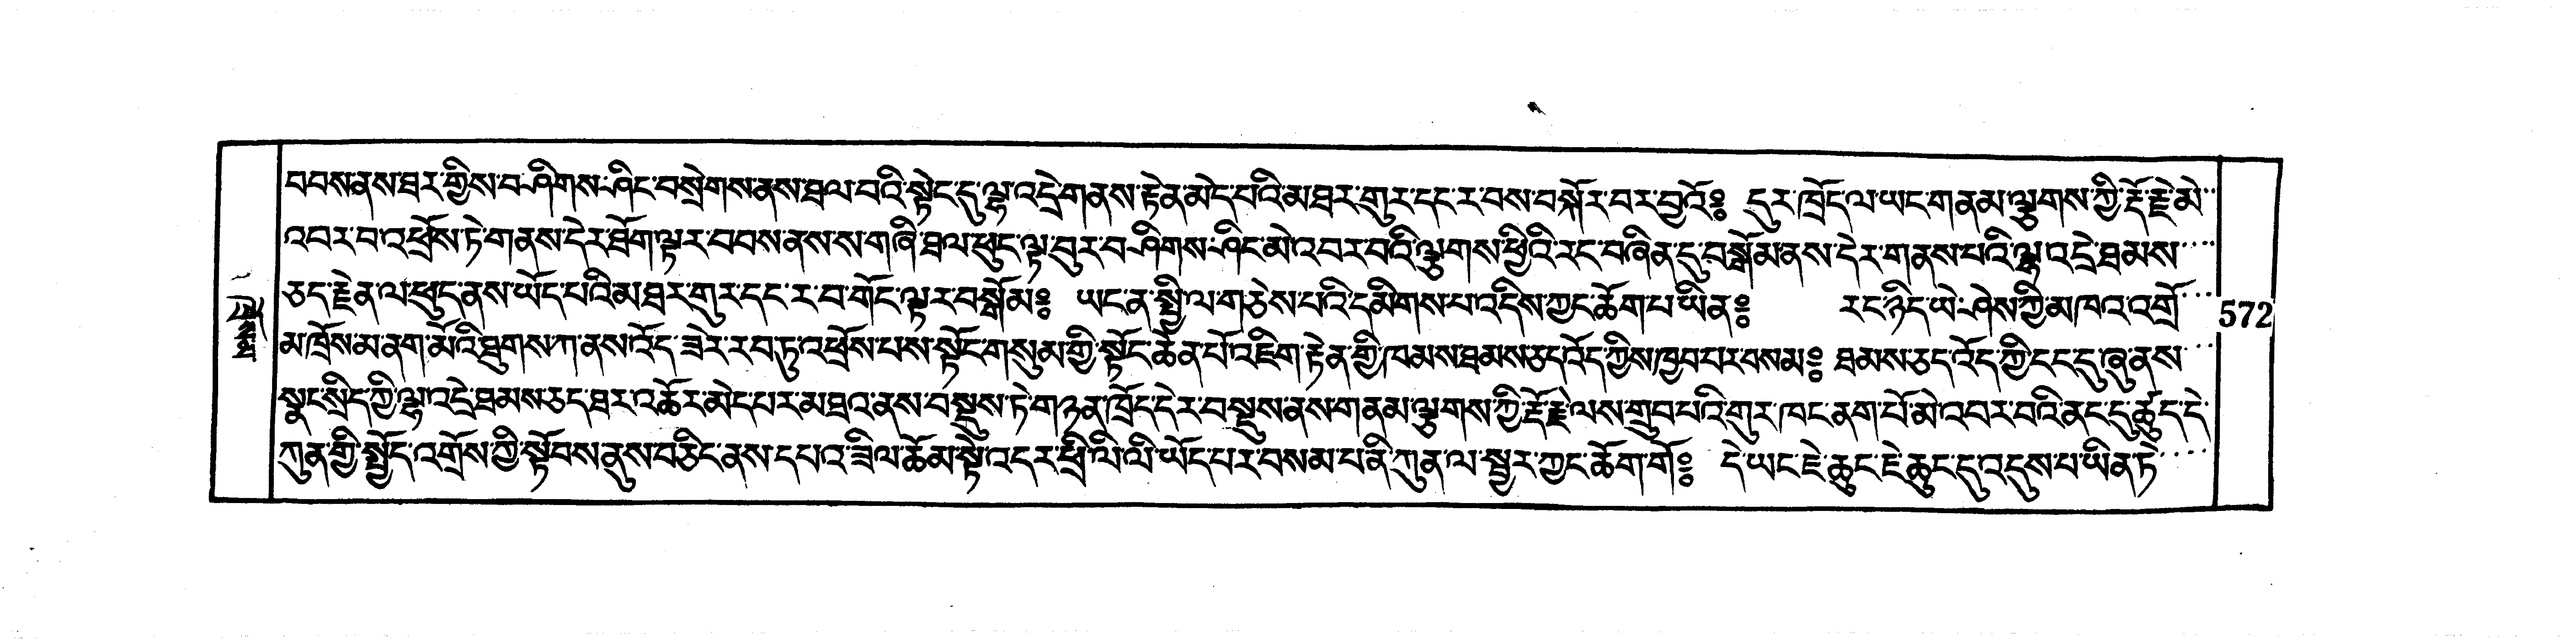 བབས་ནས་ཐར་གྱིས་བཤིགས་ཤིང་བསྲེགས་ནས་ཐལ་བའི་སྟེང་དུ་ལྷ་འདྲེ་གནས་རྟེན་མེད་པའི་མ་ཐར་གུར་དང་ར་བས་བསྐོར་བར་བྱའོ༔ དུར་ཁྲོད་ལ་ཡང་གནམ་ལྕགས་ཀྱི་རྡོ་རྗེ་མེ
འབར་བ་འཕྲོས་ཏེ་གནས་དེར་ཐོག་ལྟར་བབས་ནས་ས་གཞི་ཐལ་ཕུང་ལྟ་བུར་བཤིགས་ཤིང་མེ་འབར་བའི་ལྕགས་ཕྱིའི་རང་བཞིན་དུ་བསྒོམ་ནས་དེར་གནས་པའི་ལྷ་འདྲེ་ཐམས
ཅད་རྗེན་ལ་ཕུད་ནས་ཡོད་པའི་མ་ཐར་གུར་དང་ར་བ་གོང་ལྟར་བསྒོམ༔ ཡང་ན་སྤྱི་ལ་གཅེས་པའི་དམིགས་པ་འདིས་ཀྱང་ཆོག་པ་ཡིན༔ རང་ཉིད་ཡེ་ཤེས་ཀྱི་མཁའ་འགྲོ
མ་ཁྲོས་མ་ནག་མོའི་ཐུགས་ཀ་ནས་འོད་ཟེར་རབ་ཏུ་འཕྲོས་པས་སྟོང་གསུམ་གྱི་སྟོང་ཆེན་པོ་འཇིག་རྟེན་གྱི་ཁམས་ཐམས་ཅད་འོད་ཀྱིས་ཁྱབ་པར་བསམ༔ ཐམས་ཅད་འོད་ཀྱི་ངང་དུ་ཞུ་ནས
སྣང་སྲིད་ཀྱི་ལྷ་འདྲེ་ཐམས་ཅད་ཐར་འཆོར་མེད་པར་མཐའ་ནས་བསྡུས་ཏེ་གཉན་ཁྲོད་དེར་བསྡུས་ནས་གནམ་ལྕགས་ཀྱི་རྡོ་རྗེ་ལས་གྲུབ་པའི་གུར་ཁང་ནག་པོ་མེ་འབར་བའི་ནང་དུ་ཚུད་དེ
ཀུན་གྱི་སྤྱོད་འགྲོས་ཀྱི་སྟོབས་ནུས་བཅིང་ནས་དཔའ་ཟིལ་ཆོམ་སྟེ་འདར་ཕྲི་ལི་ལི་ཡོད་པར་བསམ་པ་ནི་ཀུན་ལ་སྦྱར་ཀྱང་ཆོག་གོ༔ དེ་ཡང་ཇེ་ཆུང་ཇེ་ཆུང་དུ་འདུས་པ་ཡིན་ཏེ
572